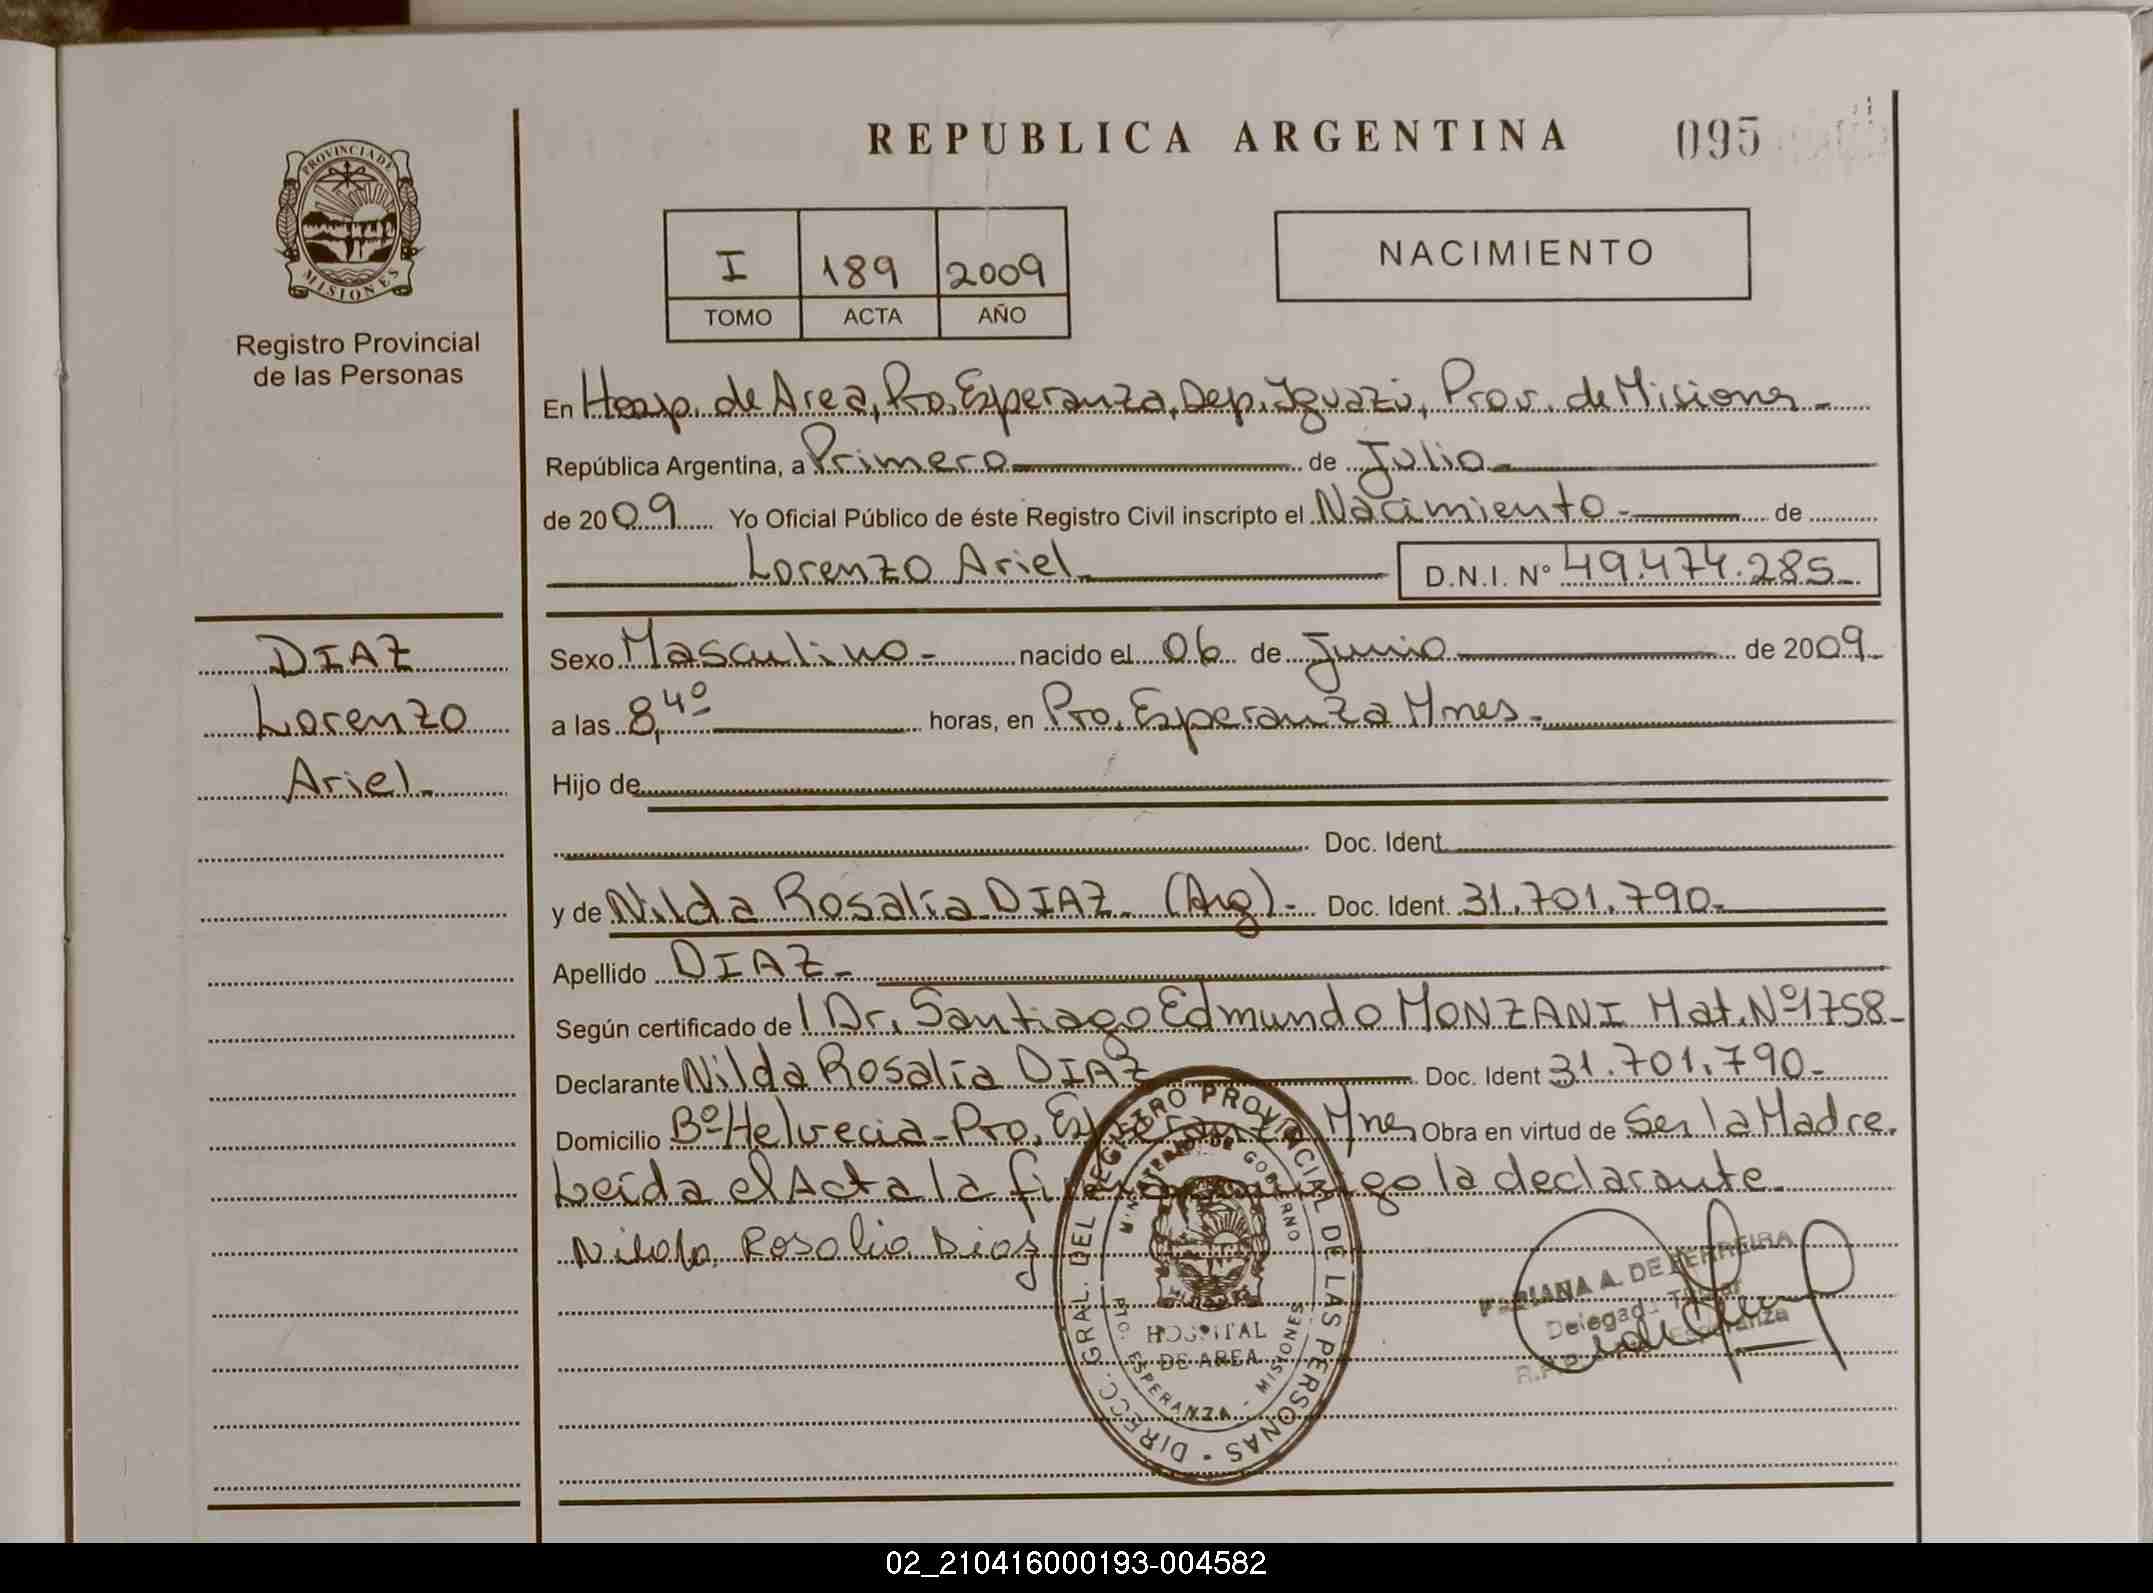 REPUBLICA ARGENTINA 095
PROVINCIA DE
MISIONES
Registro Provincial
de las Personas
I 189 2009
TOMO ACTA AÑO
NACIMIENTO
En Hosp. de Area, Pto. Esperanza, Dep. Iguazú, Prov. de Misiones -
República Argentina, a Primero de Julio
de 2009 Yo Oficial Público de éste Registro Civil inscripto el Nacimiento - de
Lorenzo Ariel D.N.I. Nº 49.474.285
DIAZ
Lorenzo
Ariel
Sexo Masculino - nacido el 06 de Junio de 2009
a las 8,40 horas, en Pto. Esperanza Mnes -
Hijo de
Doc. Ident.
y de Nilda Rosalía DIAZ (Arg) - Doc. Ident. 31.701.790-
Apellido DIAZ -
Según certificado de l Dr. Santiago Edmundo MONZANI Mat. Nº 1758-
Declarante Nilda Rosalía DIAZ Doc. Ident 31.701.790-
Domicilio Bº Helvecia - Pto. Esperanza Mnes Obra en virtud de Ser la Madre.
Leída el Acta la firma conmigo la declarante
Nilda Rosalia Diaz
DIRECC. GRAL. DEL REGISTRO PROVINCIAL DE LAS PERSONAS
MINISTERIO DE GOBIERNO
HOSPITAL
DE AREA
PTO. ESPERANZA - MISIONES
A. DE FERREIRA
02_210416000193-004582